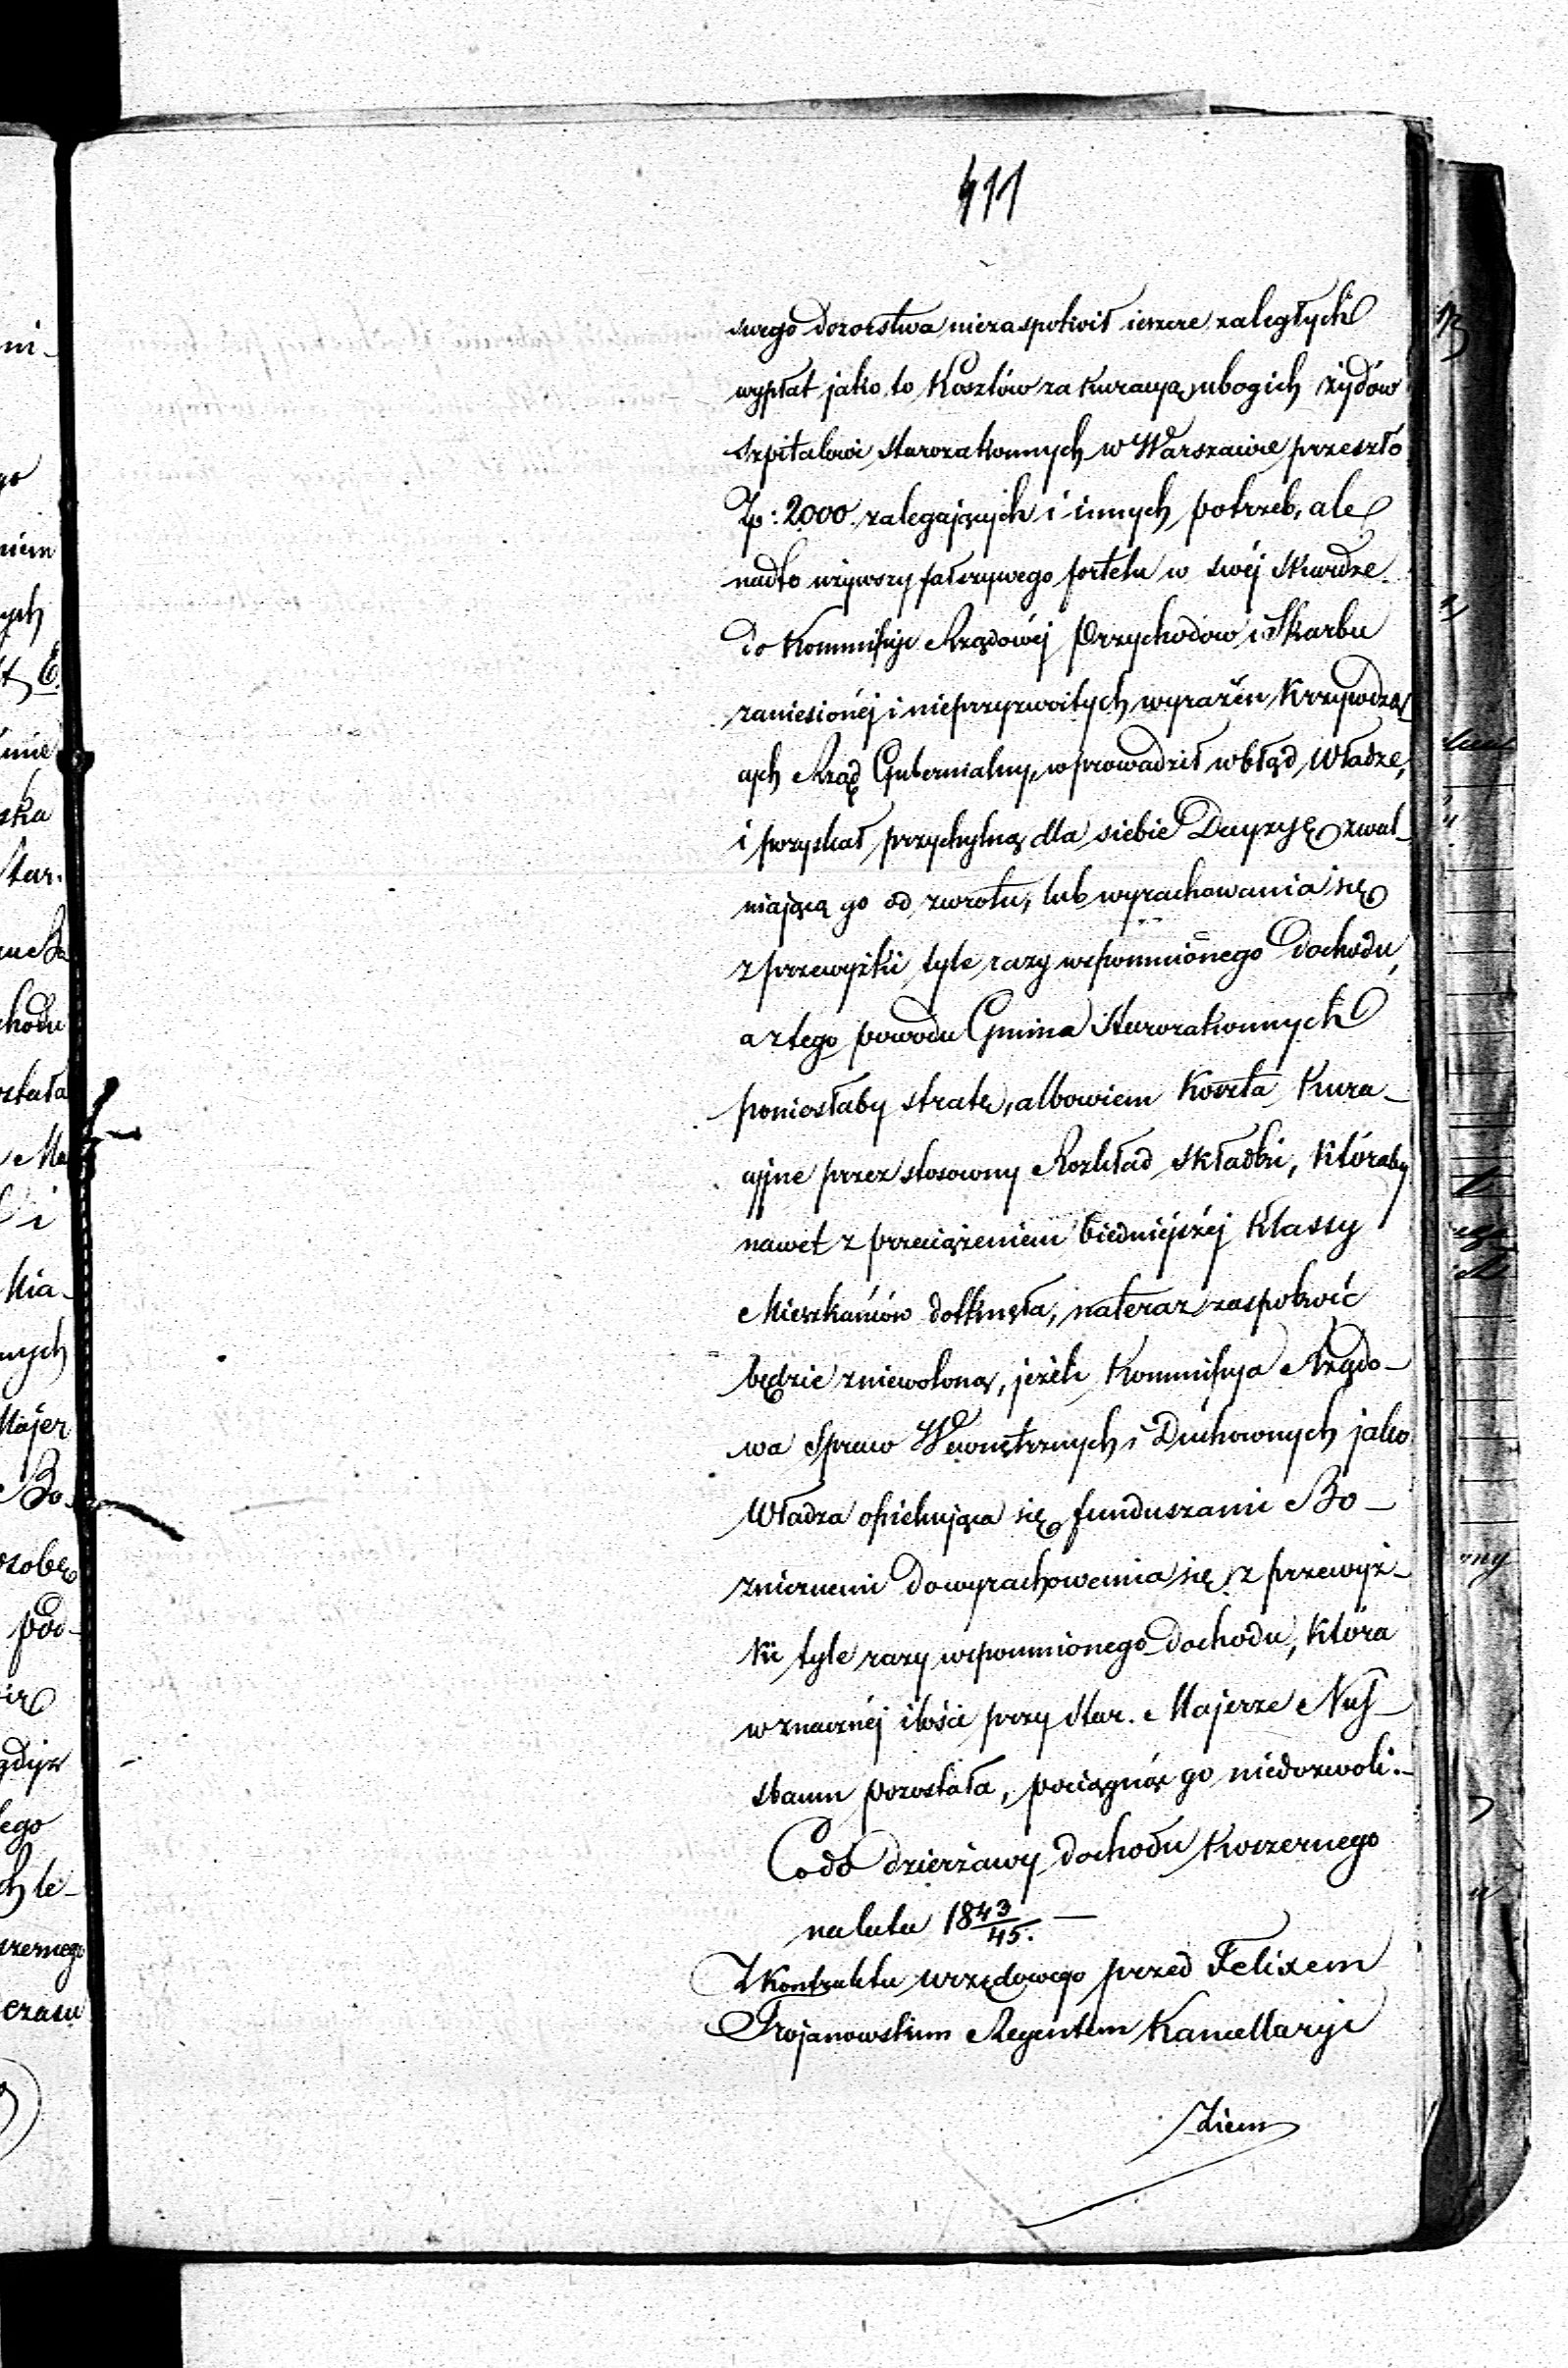 411
swego dozorstwa niezaspokoił ieszcze zaległych
wypłat jako to Kosztów za kuracyą ubogich żydów
Szpitalowi Starozakonnych w Warszawie przeszło
Zp: 2000 zalegających i innych potrzeb, ale
nadto używszy fałszywego fortelu w swéj skardze
do Kommissyi Rządowéj Przychodów i Skarbu
zaniesionéj i nieprzyzwoitych wyrażeń Krzywdzą
cych Rząd Gubernialny, wprowadził w błąd Władzę,
i pozyskał przychylną dla siebie Decyzyę zwal-
niającą go od zwrotu, lub wyrachowania się
z przewyżki tyle razy wspomnionego Dochodu,
a z tego powodu Gmina Starozakonnych
poniosłaby stratę, albowiem Koszta Kura-
cyjne przez stosowny Rozkład składki, któraby
nawet z przeciążeniem biedniejszéj Klassy
Mieszkańców dotknęła, nateraz zaspokoić
będzie zniewoloną, jeżeli Kommissya Rządo-
wa Spraw Wewnętrznych i Duchownych jako
Władza opiekująca się funduszami Bo-
żniczemi do wyrachowania się z przewyż-
ki tyle razy wspomnionego dochodu, która
w znacznéj ilości przy Star. Majerze Nus-
baum pozostała, pociągnąć go niedozwoli.
Co do dzierżawy dochodu Koszernego
na lata 1843/45. —
Z Kontraktu urzędowego przed Felixem
Trojanowskim Regentem Kancellaryi
Ziem